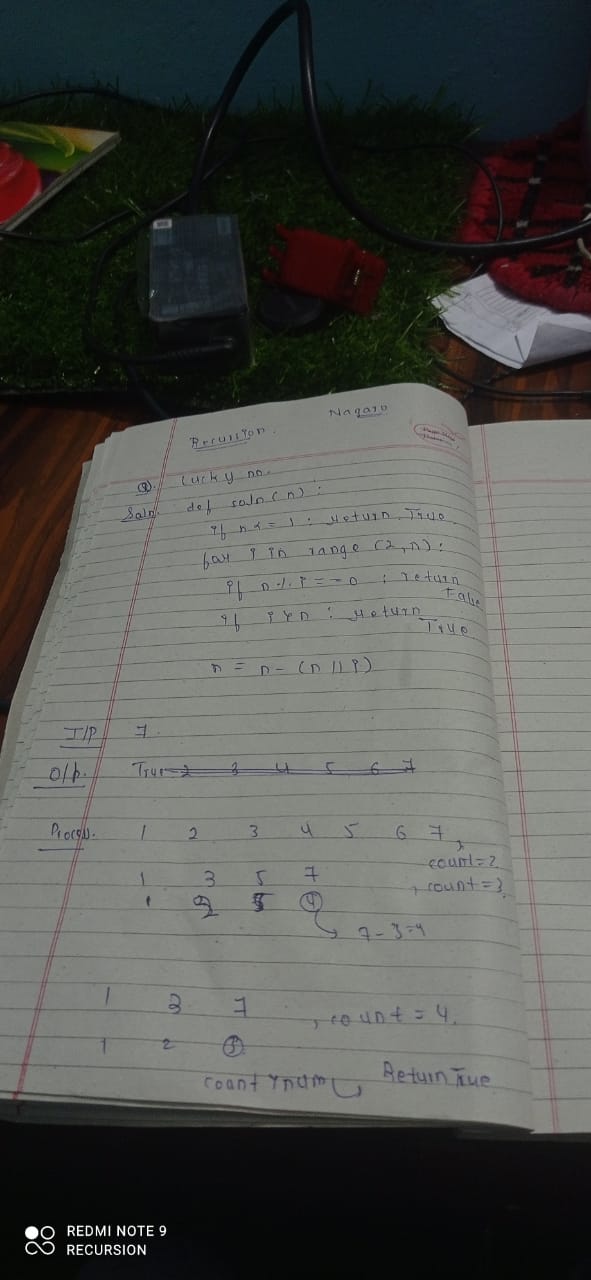 Recursion.
Nagaro
Q). Lucky no.
Soln. def soln(n):
if n <= 1: return True
for i in range (2, n):
if n % i == 0 : return
False
if i > n : return
True
n = n - (n // i)
I/P 7
O/p. True 2 3 4 5 6 7
Process. 1 2 3 4 5 6 7, count=2
1 3 5 7 , count=3
1 2 3 4
7-3=4
1 3 7 , count = 4.
1 2 3
count > num Return True
REDMI NOTE 9
RECURSION